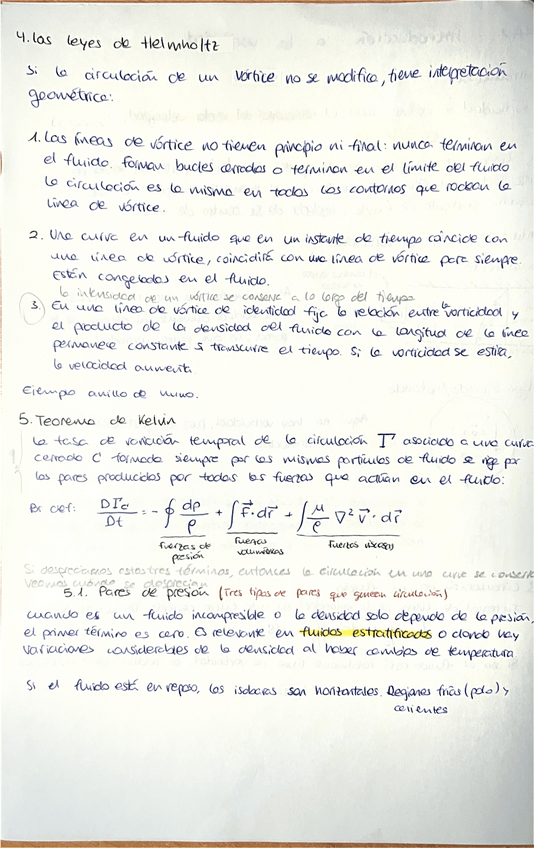 4. Las leyes de Helmholtz
Si la circulación de un vórtice no se modifica, tiene interpretación
geométrica:
1. Las líneas de vórtice no tienen principio ni final: nunca terminan en
el fluido. forman bucles cerrados o terminan en el límite del fluido
La circulación es la misma en todos los contornos que rodean la
línea de vórtice.
2. Una curva en un fluido que en un instante de tiempo coincide con
una línea de vórtice, coincidirá con una línea de vórtice para siempre.
Están congelados en el fluido.
la intensidad de un vórtice se conserva a lo largo del tiempo
3. En una línea de vórtice de identidad fija la relación entre la vorticidad y
el producto de la densidad del fluido con la longitud de la línea
permanece constante si transcurre el tiempo. Si la vorticidad se estira,
la velocidad aumenta.
Ejemplo anillo de humo.
5. Teorema de Kelvin
La tasa de variación temporal de la circulación Γ asociado a una curva
cerrado C formada siempre por las mismas partículas de fluido se rige por
los pares producidos por todas las fuerzas que actúan en el fluido:
Ec def: DΓc/Dt = - ∮ dp/ρ + ∫ F⃗·dr⃗ + ∫ μ/ρ ∇² v⃗ · dr⃗
fuerzas de presión fuerzas volumétricas fuerzas viscosas
Si despreciamos estos tres términos, entonces la circulación en una curva se conserva
Veamos cuándo se desprecian
5.1. Pares de presión (Tres tipos de pares que generan circulación)
cuando es un fluido incompresible o la densidad solo depende de la presión,
el primer término es cero. Es relevante en fluidos estratificados o donde hay
variaciones considerables de la densidad al haber cambios de temperatura.
Si el fluido está en reposo, las isobaras son horizontales. Regiones frías (polo) y
calientes